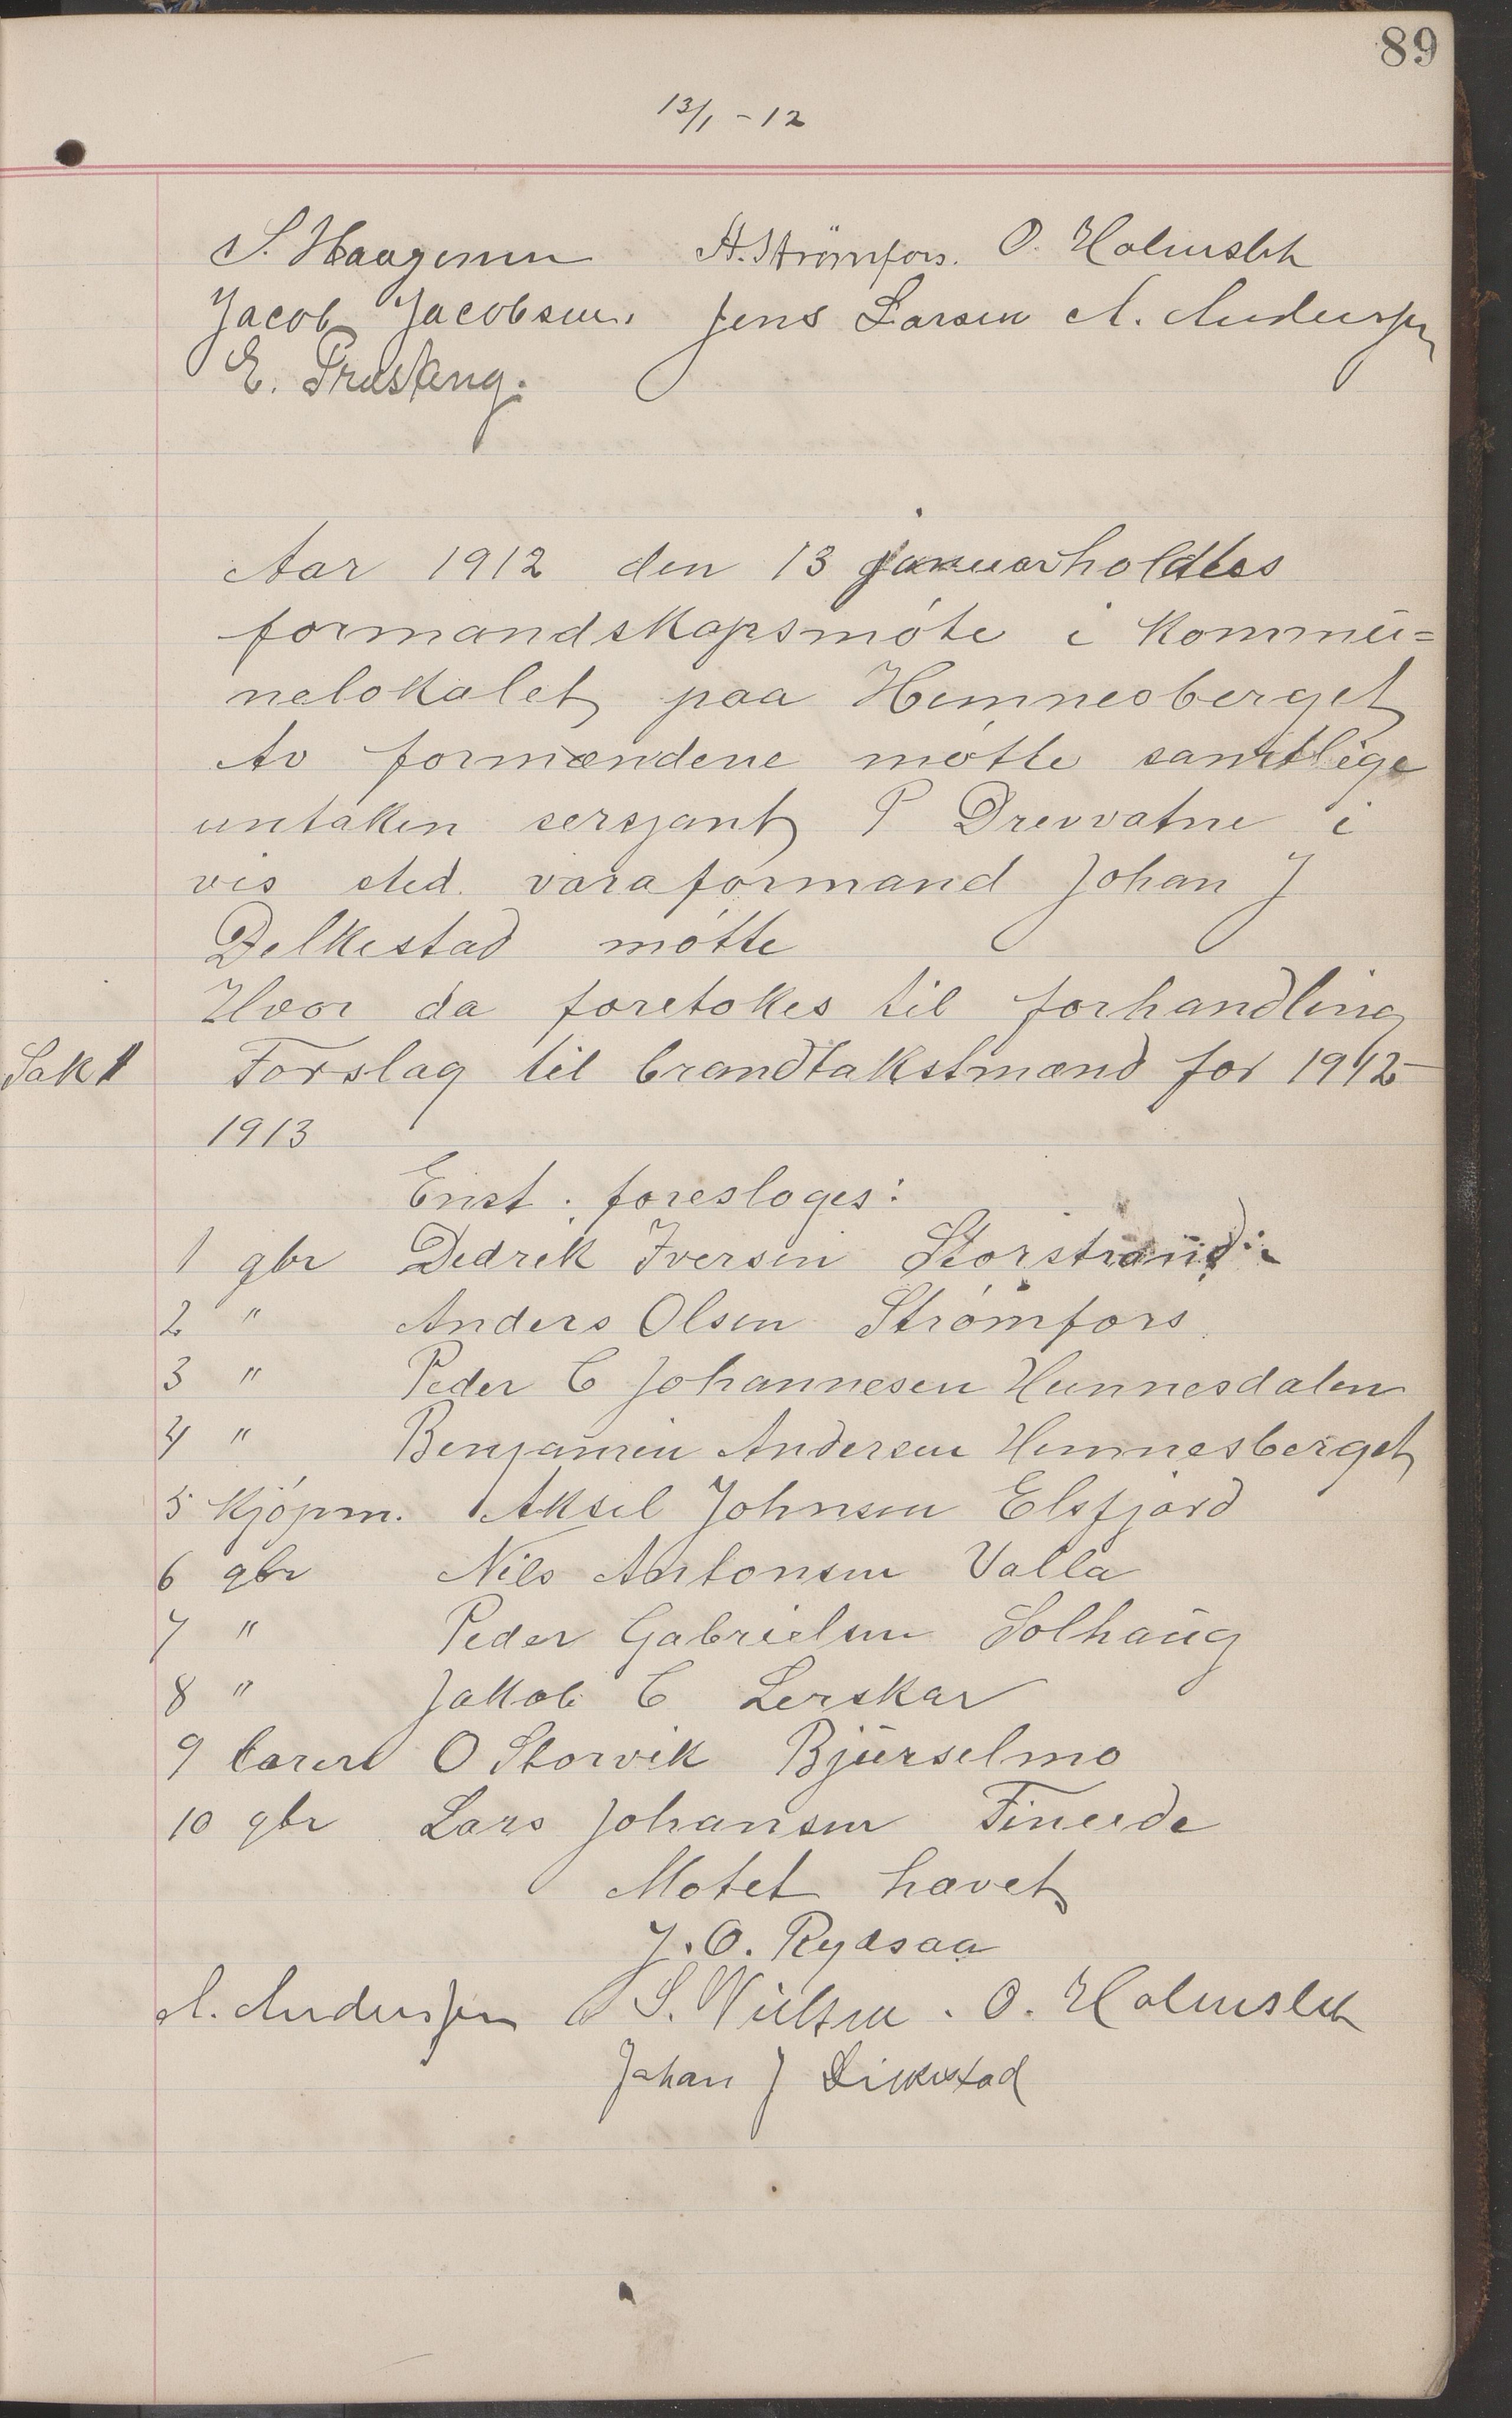 89
13/1 - 12
S. Haagensen H. Strömfors. O. Holmslet
Jacob Jacobsen. Jens Larsen A. Anderssen
E. Presteng.
Aar 1912 den 13 januar holdtes
formandskapsmöte i Kommu=
nelokalet paa Hemnesberget
Av formændene møtte samtlige
untaken sersjant P Drevvatne i
vis sted varaformand Johan J
Delkestad møtte
Hvor da foretokes til forhandling
Sak 1 Forslag til brandtakstmænd for 1912-
1913
Enst. foresloges:
1 gbr Dedrik Iversen Storstrand
2 " Anders Olsen Strømfors
3 " Peder C Johannesen Hemnesdalen
4 " Benjamin Andersen Hemnesberget
5 Kjøpm. Aksel Johnsen Elsfjord
6 gbr Nils Antonsen Valla
7 " Peder Gabrielsen Solhaug
8 " Jakob C Lerskar
9 lærer O Storvik Bjurselmo
10 gbr Lars Johansen Fineide
Møtet hævet
J. O. Rydsaa
A. Anderssen S. Nielsen. O. Holmslet
Johan J Dilkestad